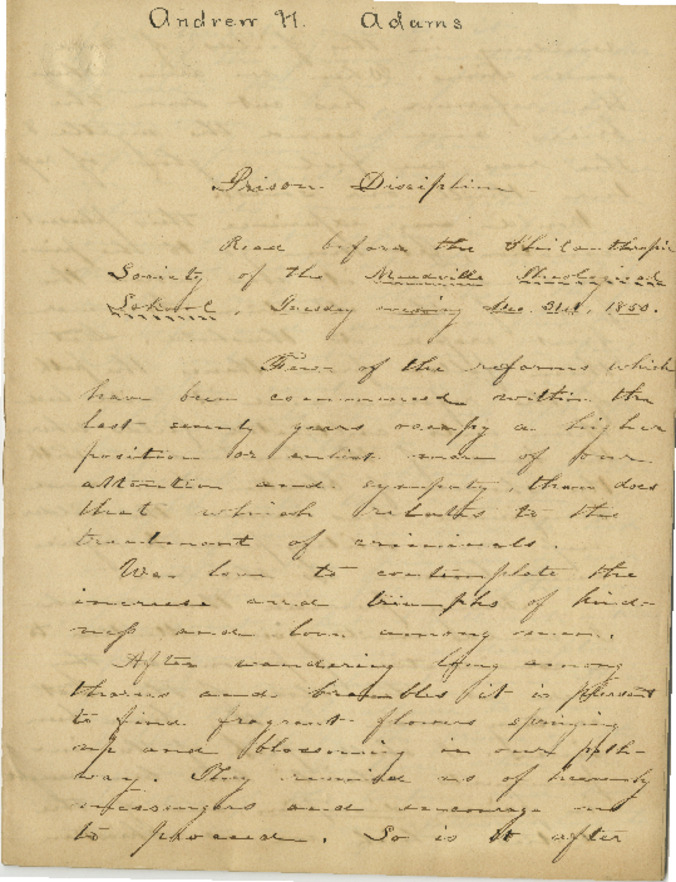 Andrew N. Adams
Prison Discipline
Read before the Philanthropic
Society of the Meadville Theological
School, Tuesday evening Dec. 31st, 1850.
Few of the reforms which
have been commenced within the
last seventy years occupy a higher
position or enlist more of our
attention and sympaty, than does
that which relates to the
treatment of criminals.
We love to contemplate the
increase and triumphs of kind-
ness and love among men.
After wandering long among
thorns and brambles it is pleasant
to find fragrant flowers springing
up and blossoming in our path-
way. They remind us of heavenly
messengers and encourage us
to proceed. So is it after